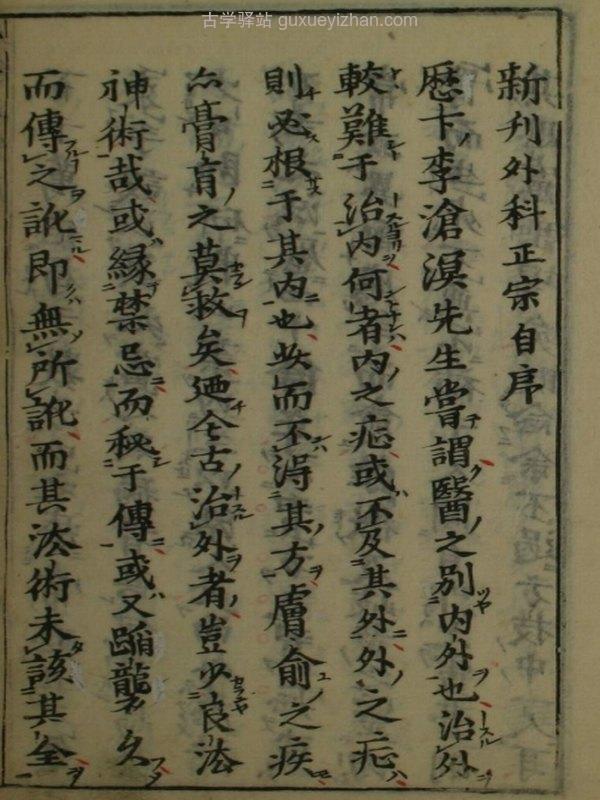 古学驿站 guxueyizhan.com
新刋外科正宗自序
歴卞李滄溟先生嘗謂醫之別内外也治外
較難于治内何者内之疪或不及其外外之疪
則必根于其内也此而不淂其方膚俞之疾
亦膏肓之莫救矣迺仝古治外者豈少良法
神術哉或縁禁忌而秘于傳或又蹈襲久
而傳之訛即無所訛而其法術未該其全